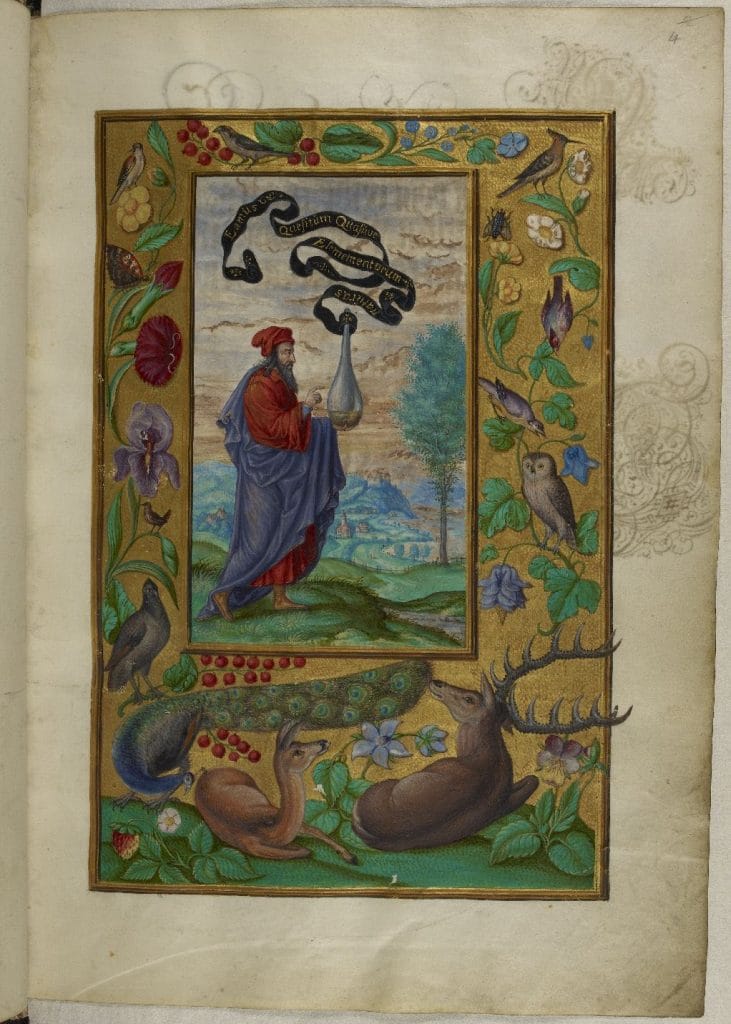 4
Eamus
Quesitum Quatuor
Elementorum
Naturas